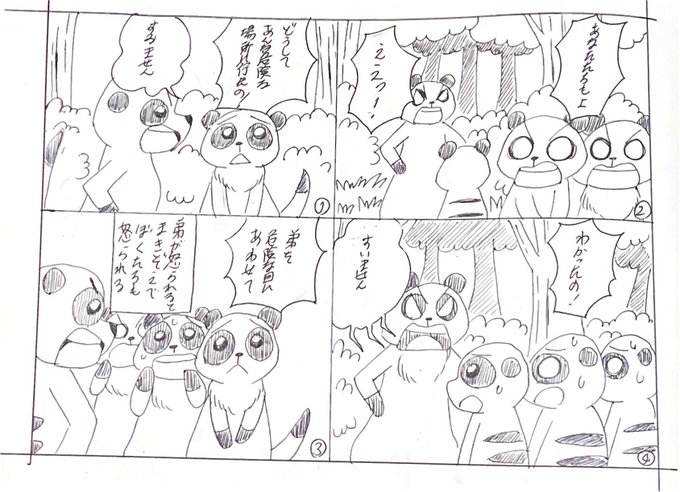 どうして
あんな危険な
場所に行くの!
すみません
①
あなたたちもよ
えーっ!
②
弟を
危険な目に
あわせて
弟が怒られると
まきぞえで
ぼくたちも
怒られる
③
わかったの!
すいません
④